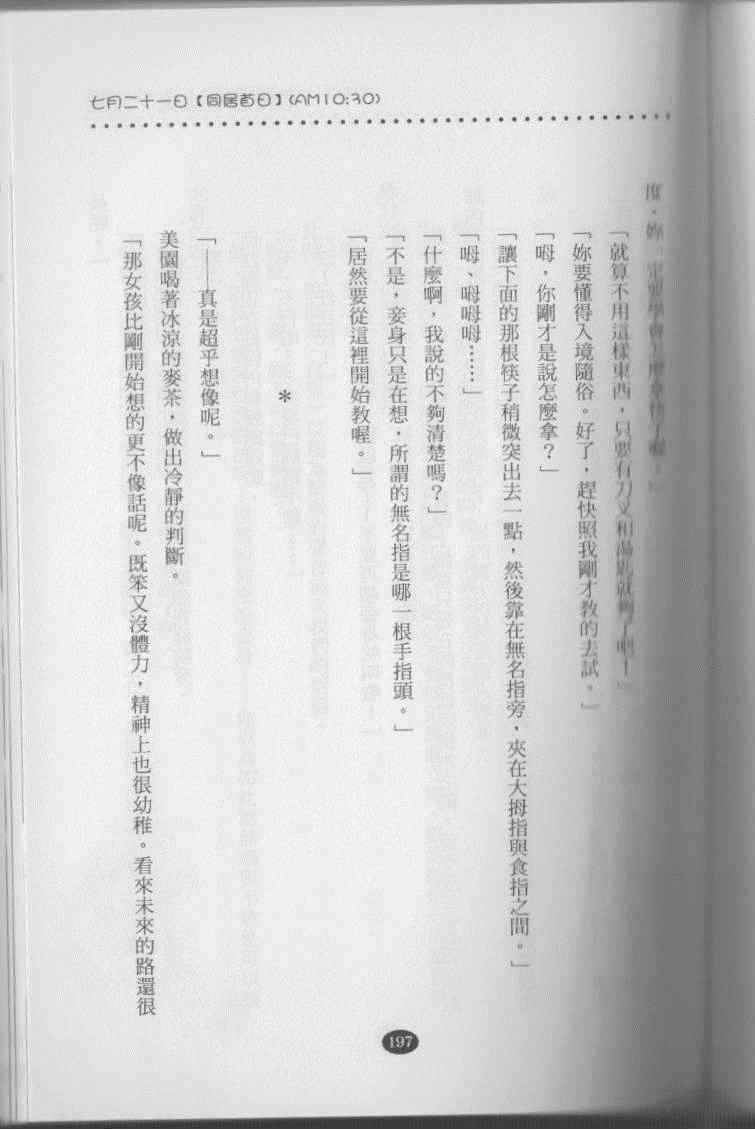 七月二十一日【同居首日】(AM10:30)
度，妳一定要學會怎麼拿筷子喔。」
「就算不用這樣東西，只要有刀叉和湯匙就夠了吧！」
「妳要懂得入境隨俗。好了，趕快照我剛才教的去試。」
「呣，你剛才是說怎麼拿？」
「讓下面的那根筷子稍微突出去一點，然後靠在無名指旁，夾在大拇指與食指之間。」
「呣、呣呣呣……」
「什麼啊，我說的不夠清楚嗎？」
「不是，妾身只是在想，所謂的無名指是哪一根手指頭。」
「居然要從這裡開始教喔。」
＊
「——真是超乎想像呢。」
美園喝著冰涼的麥茶，做出冷靜的判斷。
「那女孩比剛開始想的更不像話呢。既笨又沒體力，精神上也很幼稚。看來未來的路還很
197